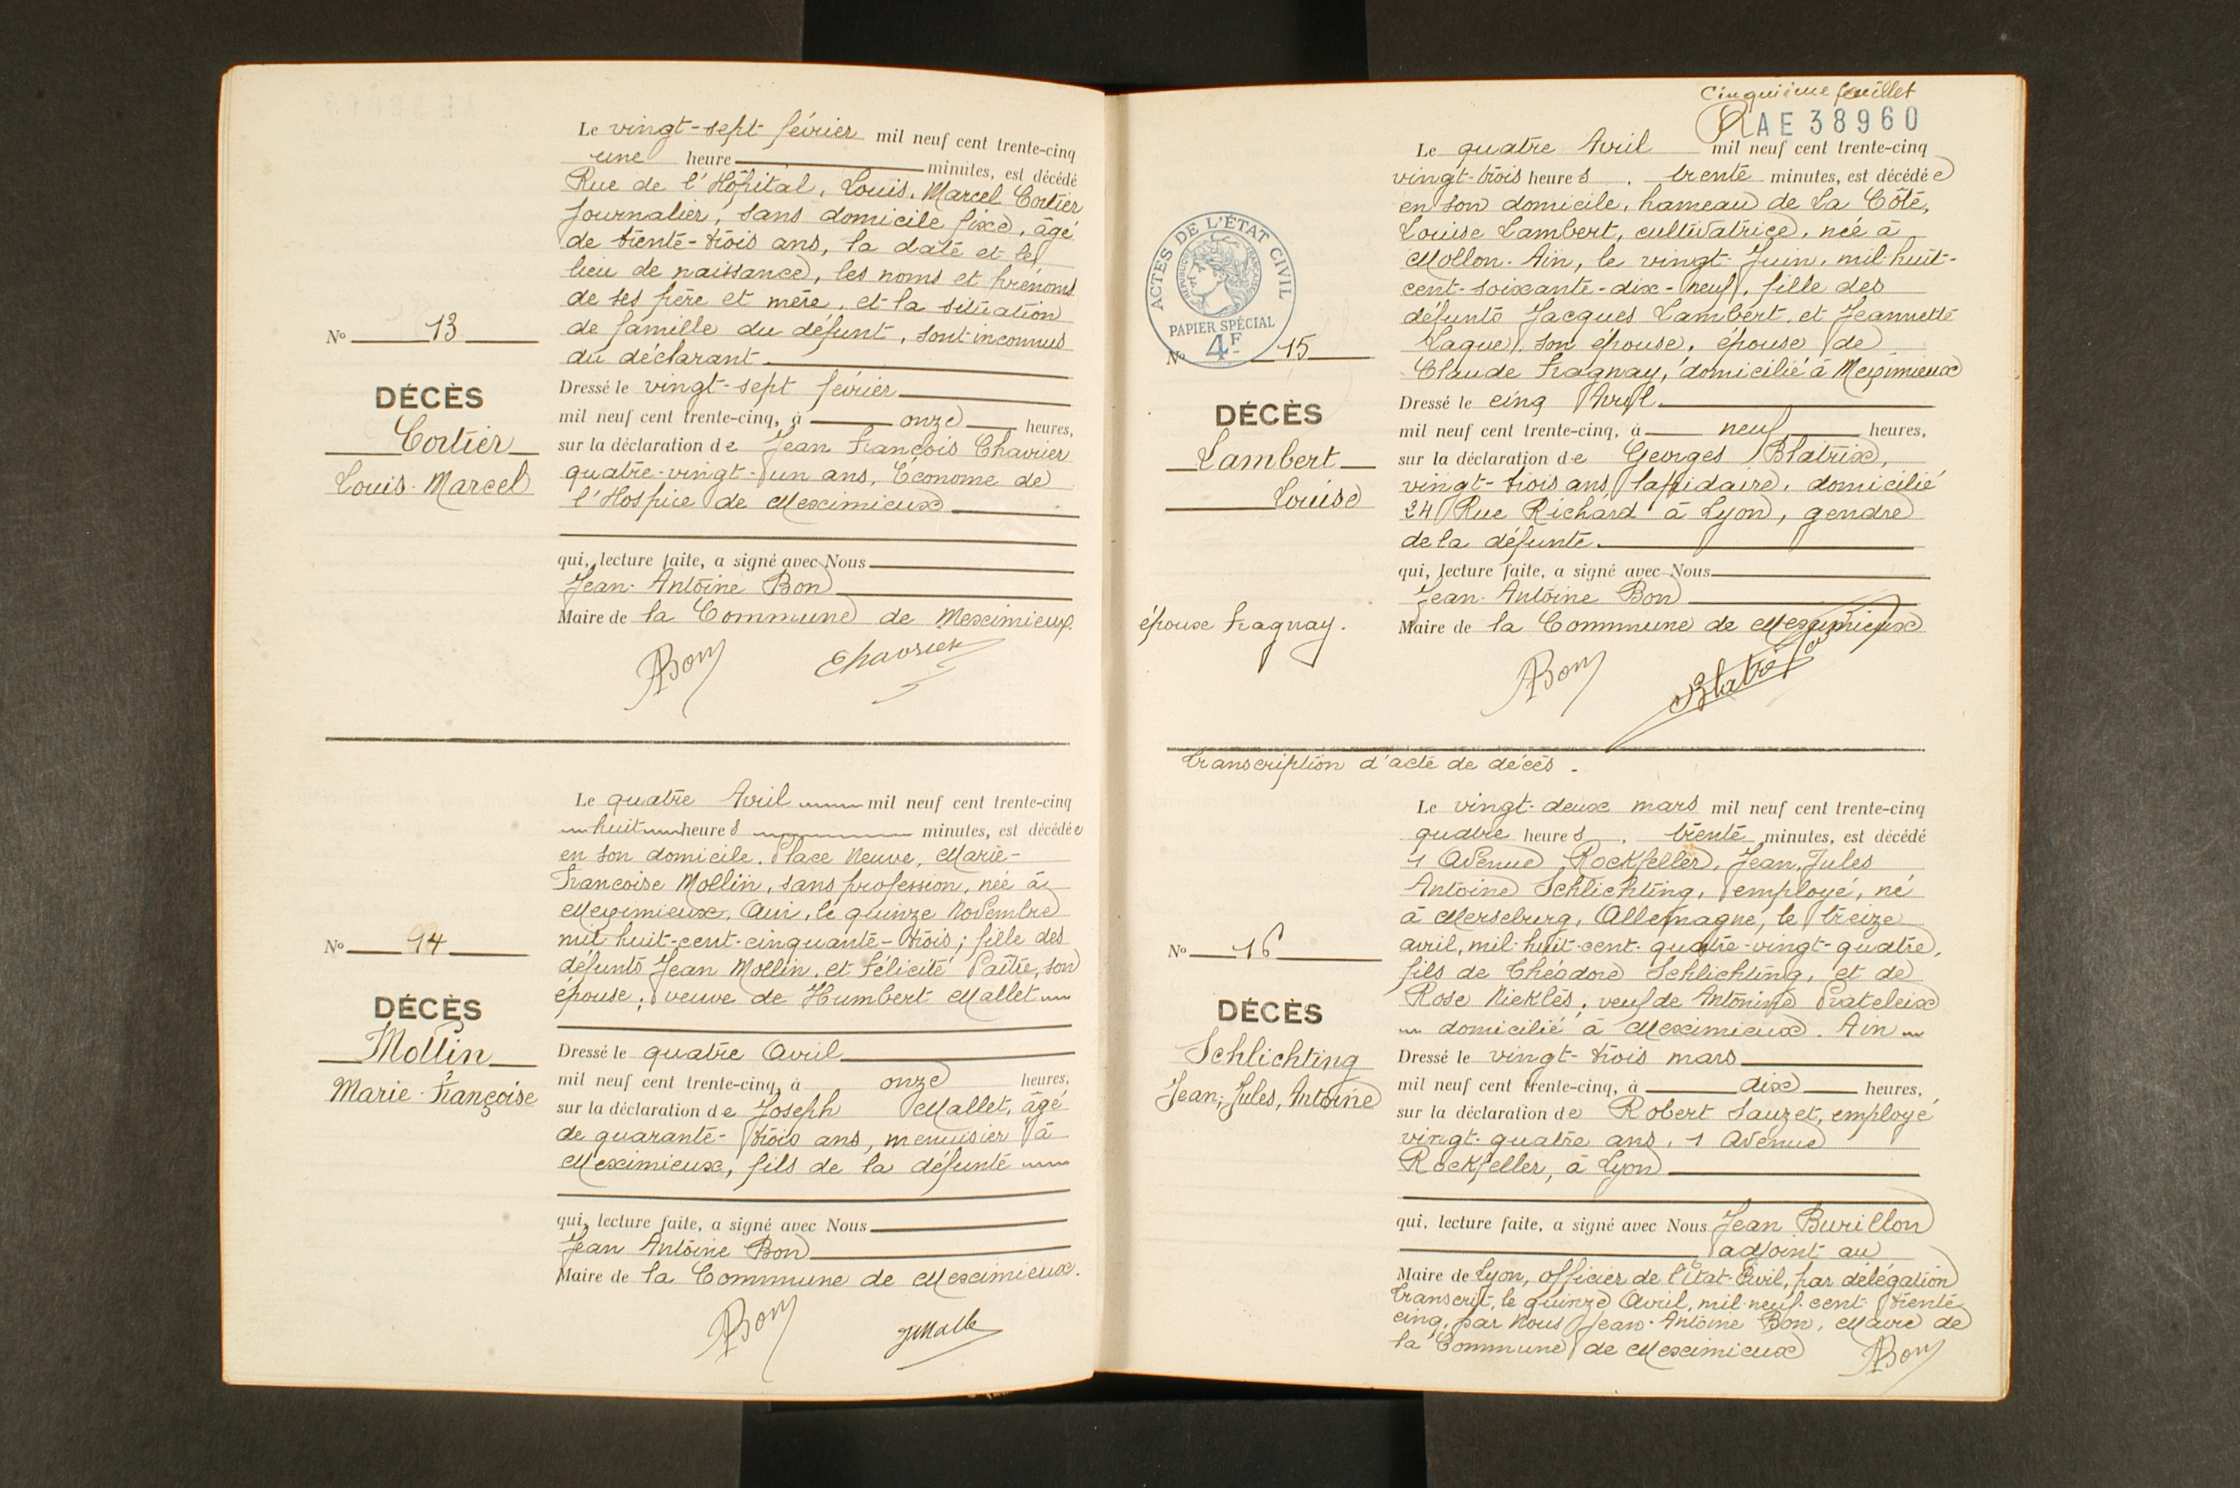 Le vingt-sept février mil neuf cent trente-cinq
une heure minutes, est décédé
Rue de l'Hôpital, Louis, Marcel Cortier
journalier, sans domicile fixe, âgé
de trente-trois ans, la date et les
lieu de naissance, les noms et prénoms
de ses père et mère, et la situation
de famille du défunt, sont inconnus
du déclarant
Nº 13
DÉCÈS
Cortier
Louis-Marcel
Dressé le vingt-sept février
mil neuf cent trente-cinq, à onze heures,
sur la déclaration de Jean François Chavrier
quatre-vingt-un ans, Économe de
l'Hospice de Meximieux
qui, lecture faite, a signé avec Nous
Jean-Antoine Bon
Maire de la Commune de Meximieux.
ABon Chavrier
Le quatre Avril mil neuf cent trente-cinq
huit heures minutes, est décédée
en son domicile, Place Neuve, Marie-
Francoise Mollin, sans profession, née à
Meximieux, Ain, le quinze Novembre
mil huit-cent-cinquante-trois; fille des
défunts Jean Mollin, et Félicité Paître, son
épouse; veuve de Humbert Mallet
Nº 14
DÉCÈS
Mollin
Marie-Françoise
Dressé le quatre Avril
mil neuf cent trente-cinq, à onze heures,
sur la déclaration de Joseph Mallet, âgé
de quarante-trois ans, menuisier à
Meximieux, fils de la défunte
qui, lecture faite, a signé avec Nous
Jean Antoine Bon
Maire de la Commune de Meximieux.
ABon JMalle
Cinquième feuillet
AE 38960
Le quatre Avril mil neuf cent trente-cinq
vingt-trois heures, trente minutes, est décédée
en son domicile, hameau de La Côte,
Louise Lambert, cultivatrice, née à
Mollon-Ain, le vingt-Juin, mil-huit-
cent-soixante-dix-neuf, fille des
défunts Jacques Lambert, et Jeannette
Lague, son épouse, épouse de
Claude Fragnay, domicilié à Meximieux
ACTES DE L'ÉTAT CIVIL
RÉPUBLIQUE FRANÇAISE
PAPIER SPÉCIAL
4F
Nº 15
DÉCÈS
Lambert
Louise
épouse Fragnay.
Dressé le cinq Avril
mil neuf cent trente-cinq, à neuf heures,
sur la déclaration de Georges Blatrix,
vingt-trois ans, lapidaire, domicilié
24 Rue Richard à Lyon, gendre
de la défunte.
qui, lecture faite, a signé avec Nous
Jean-Antoine Bon
Maire de la Commune de Meximieux
ABon Blatrix
Transcription d'acte de décès.
Le vingt-deux mars mil neuf cent trente-cinq
quatre heures, trente minutes, est décédé
1 Avenue Rockfeller, Jean, Jules
Antoine Schlichting, employé, né
à Merseburg, Allemagne, le treize
avril, mil-huit-cent-quatre-vingt-quatre,
fils de Théodore Schlichting, et de
Rose Nicklès, veuf de Antonine Prateleix
domicilié à Meximieux. Ain
Nº 16
DÉCÈS
Schlichting
Jean, Jules, Antoine
Dressé le vingt-trois mars
mil neuf cent trente-cinq, à dix heures,
sur la déclaration de Robert Sauzet, employé
vingt-quatre ans, 1 Avenue
Rockfeller, à Lyon
qui, lecture faite, a signé avec Nous Jean Burillon
adjoint au
Maire de Lyon, officier de l'État-Civil, par délégation
Transcrit, le quinze Avril, mil-neuf-cent-trente
cinq, par Nous Jean-Antoine Bon, Maire de
la Commune de Meximieux ABon